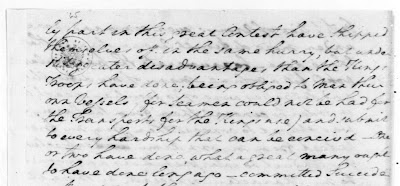 ty part in this great Contest have shipped
themselves of in the same hurry, but unde
disadvantages than the Kings
Troops have done, being obliged to Man their
own Vessels (for Seamen could not be had for
the Transports for the Kings use) and submit
to every hardship that can be conceived – One
or two have done, what a great many ought
to have done long ago – committed Suicide